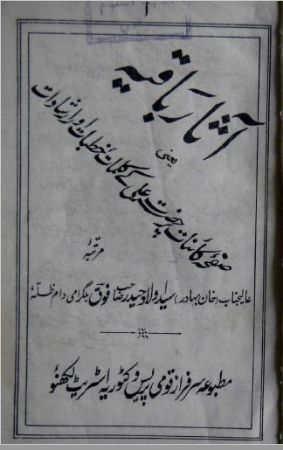 آثار باقیہ
یعنی
صفحۂ کائنات پر حضرت علی کے کلمات خطبات اور ارشادات
مرتبۂ
عالیجناب (خان بہادر) سید اولاد حیدر صاحب فوق بلگرامی دام ظلہ
مطبوعہ سرفراز قومی پریس وکٹوریہ اسٹریٹ لکھنؤ